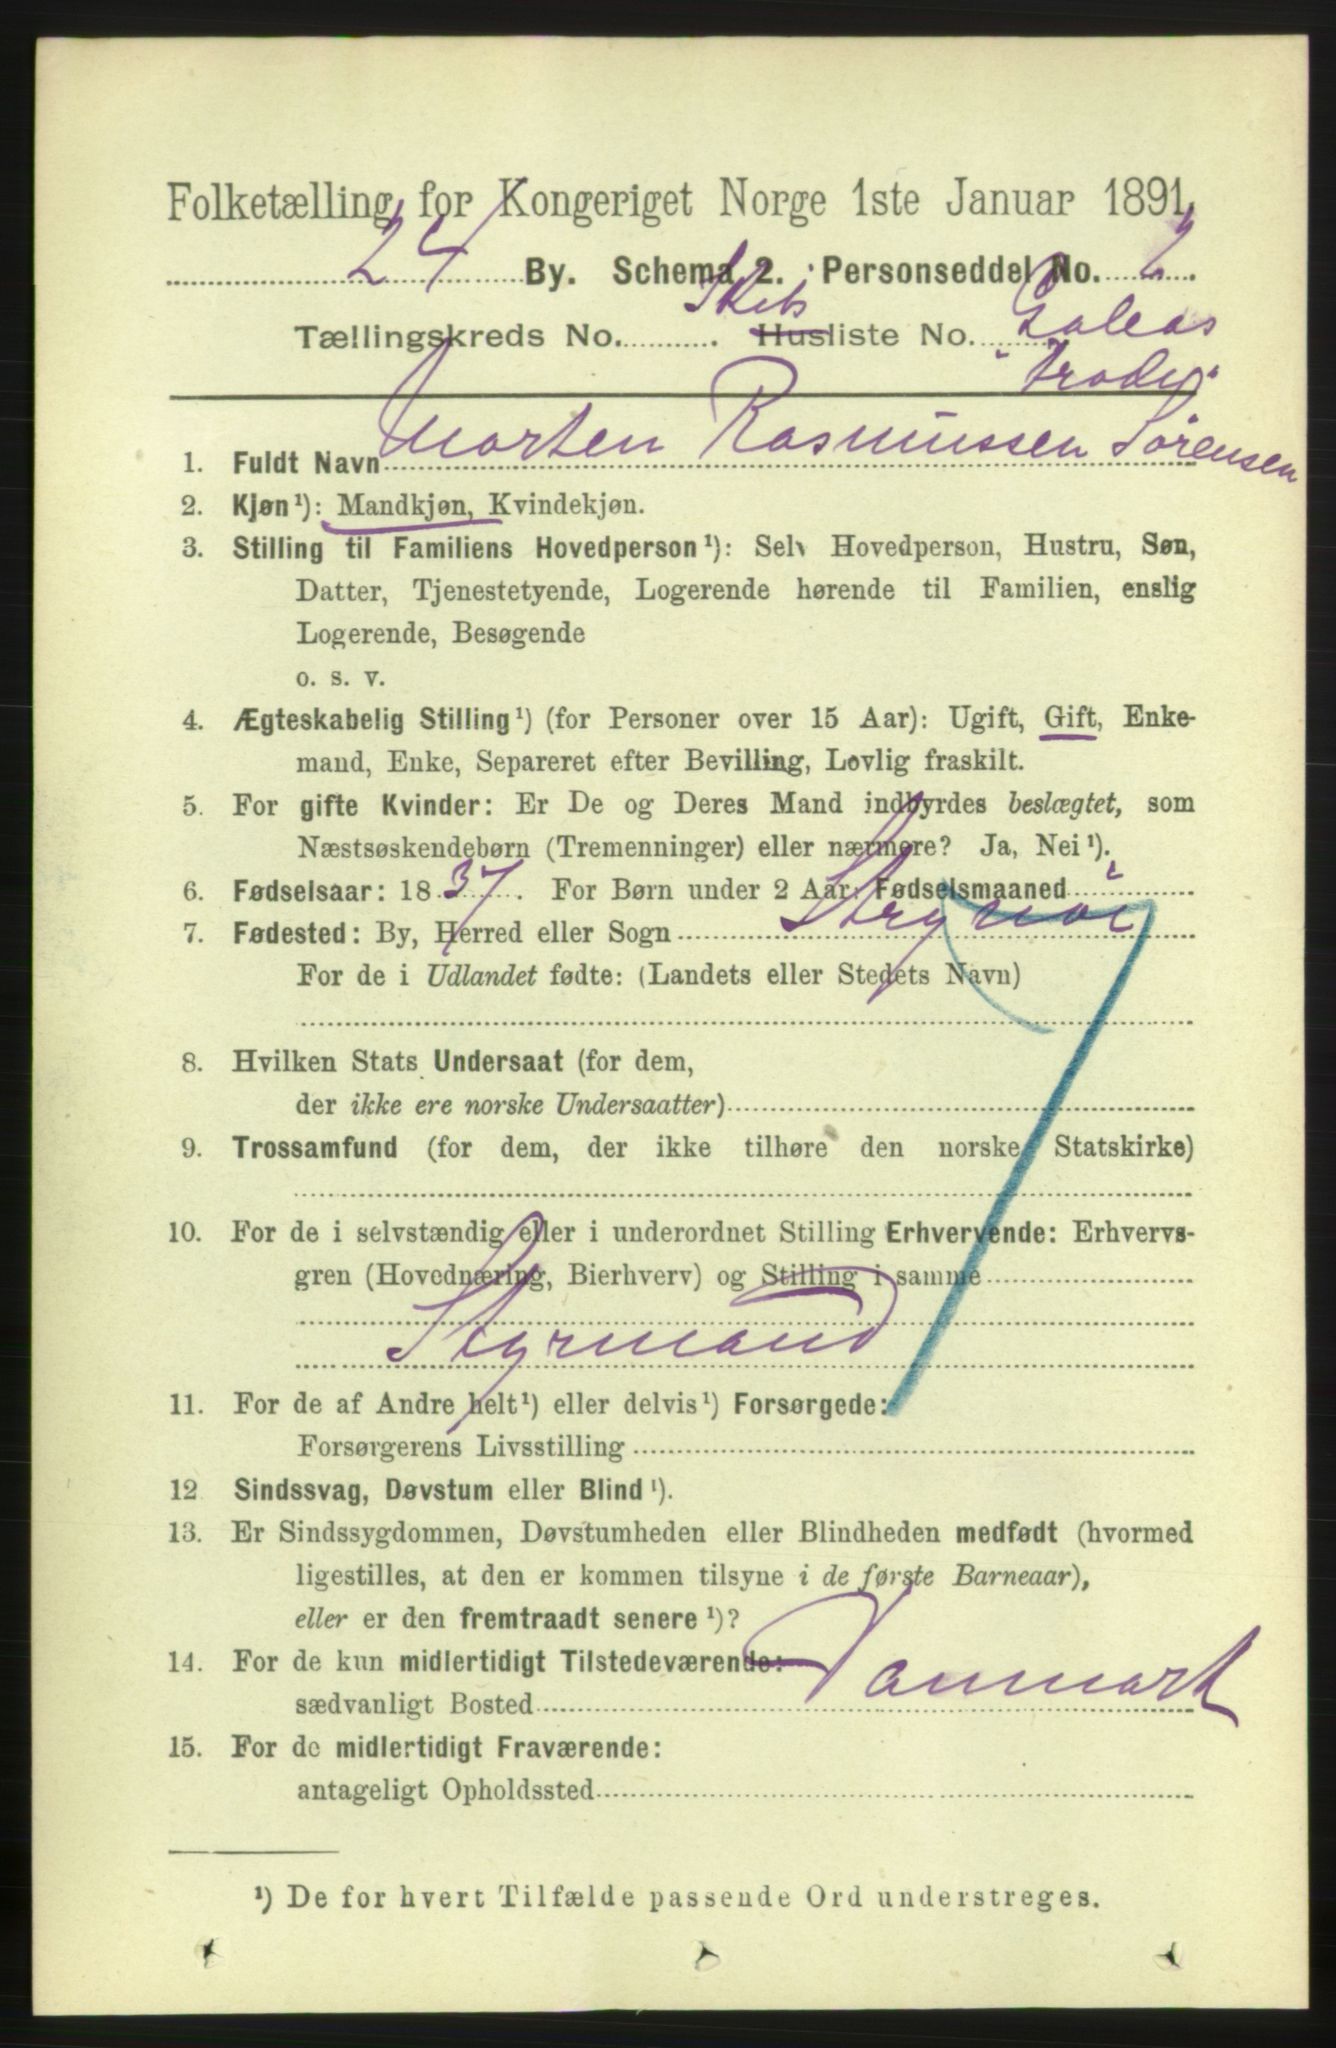 Folketælling for Kongeriget Norge 1ste Januar 1891.
24 By. Schema 2. Personseddel No. 2.
Skibs Galeas
Tællingskreds No. Husliste No.
1. Fuldt Navn Morten Rasmussen Sörensen
2. Kjøn¹): Mandkjøn, Kvindekjøn.
3. Stilling til Familiens Hovedperson¹): Selv Hovedperson, Hustru, Søn,
Datter, Tjenestetyende, Logerende hørende til Familien, enslig
Logerende, Besøgende
o. s. v.
4. Ægteskabelig Stilling¹) (for Personer over 15 Aar): Ugift, Gift, Enke-
mand, Enke, Separeret efter Bevilling, Lovlig fraskilt.
5. For gifte Kvinder: Er De og Deres Mand indbyrdes beslægtet, som
Næstsøskendebørn (Tremenninger) eller nærmere? Ja, Nei¹).
6. Fødselsaar: 1837. For Børn under 2 Aar: Fødselsmaaned
7. Fødested: By, Herred eller Sogn Strynöi
For de i Udlandet fødte: (Landets eller Stedets Navn)
8. Hvilken Stats Undersaat (for dem,
der ikke ere norske Undersaatter)
9. Trossamfund (for dem, der ikke tilhøre den norske Statskirke)
10. For de i selvstændig eller i underordnet Stilling Erhvervende: Erhvervs-
gren (Hovednæring, Bierhverv) og Stilling i samme
Styrmand
11. For de af Andre helt¹) eller delvis¹) Forsørgede:
Forsørgerens Livsstilling
12 Sindssvag, Døvstum eller Blind¹).
13. Er Sindssygdommen, Døvstumheden eller Blindheden medfødt (hvormed
ligestilles, at den er kommen tilsyne i de første Barneaar),
eller er den fremtraadt senere¹)?
14. For de kun midlertidigt Tilstedeværende:
sædvanligt Bosted Danmark
15. For de midlertidigt Fraværende:
antageligt Opholdssted
¹) De for hvert Tilfælde passende Ord understreges.